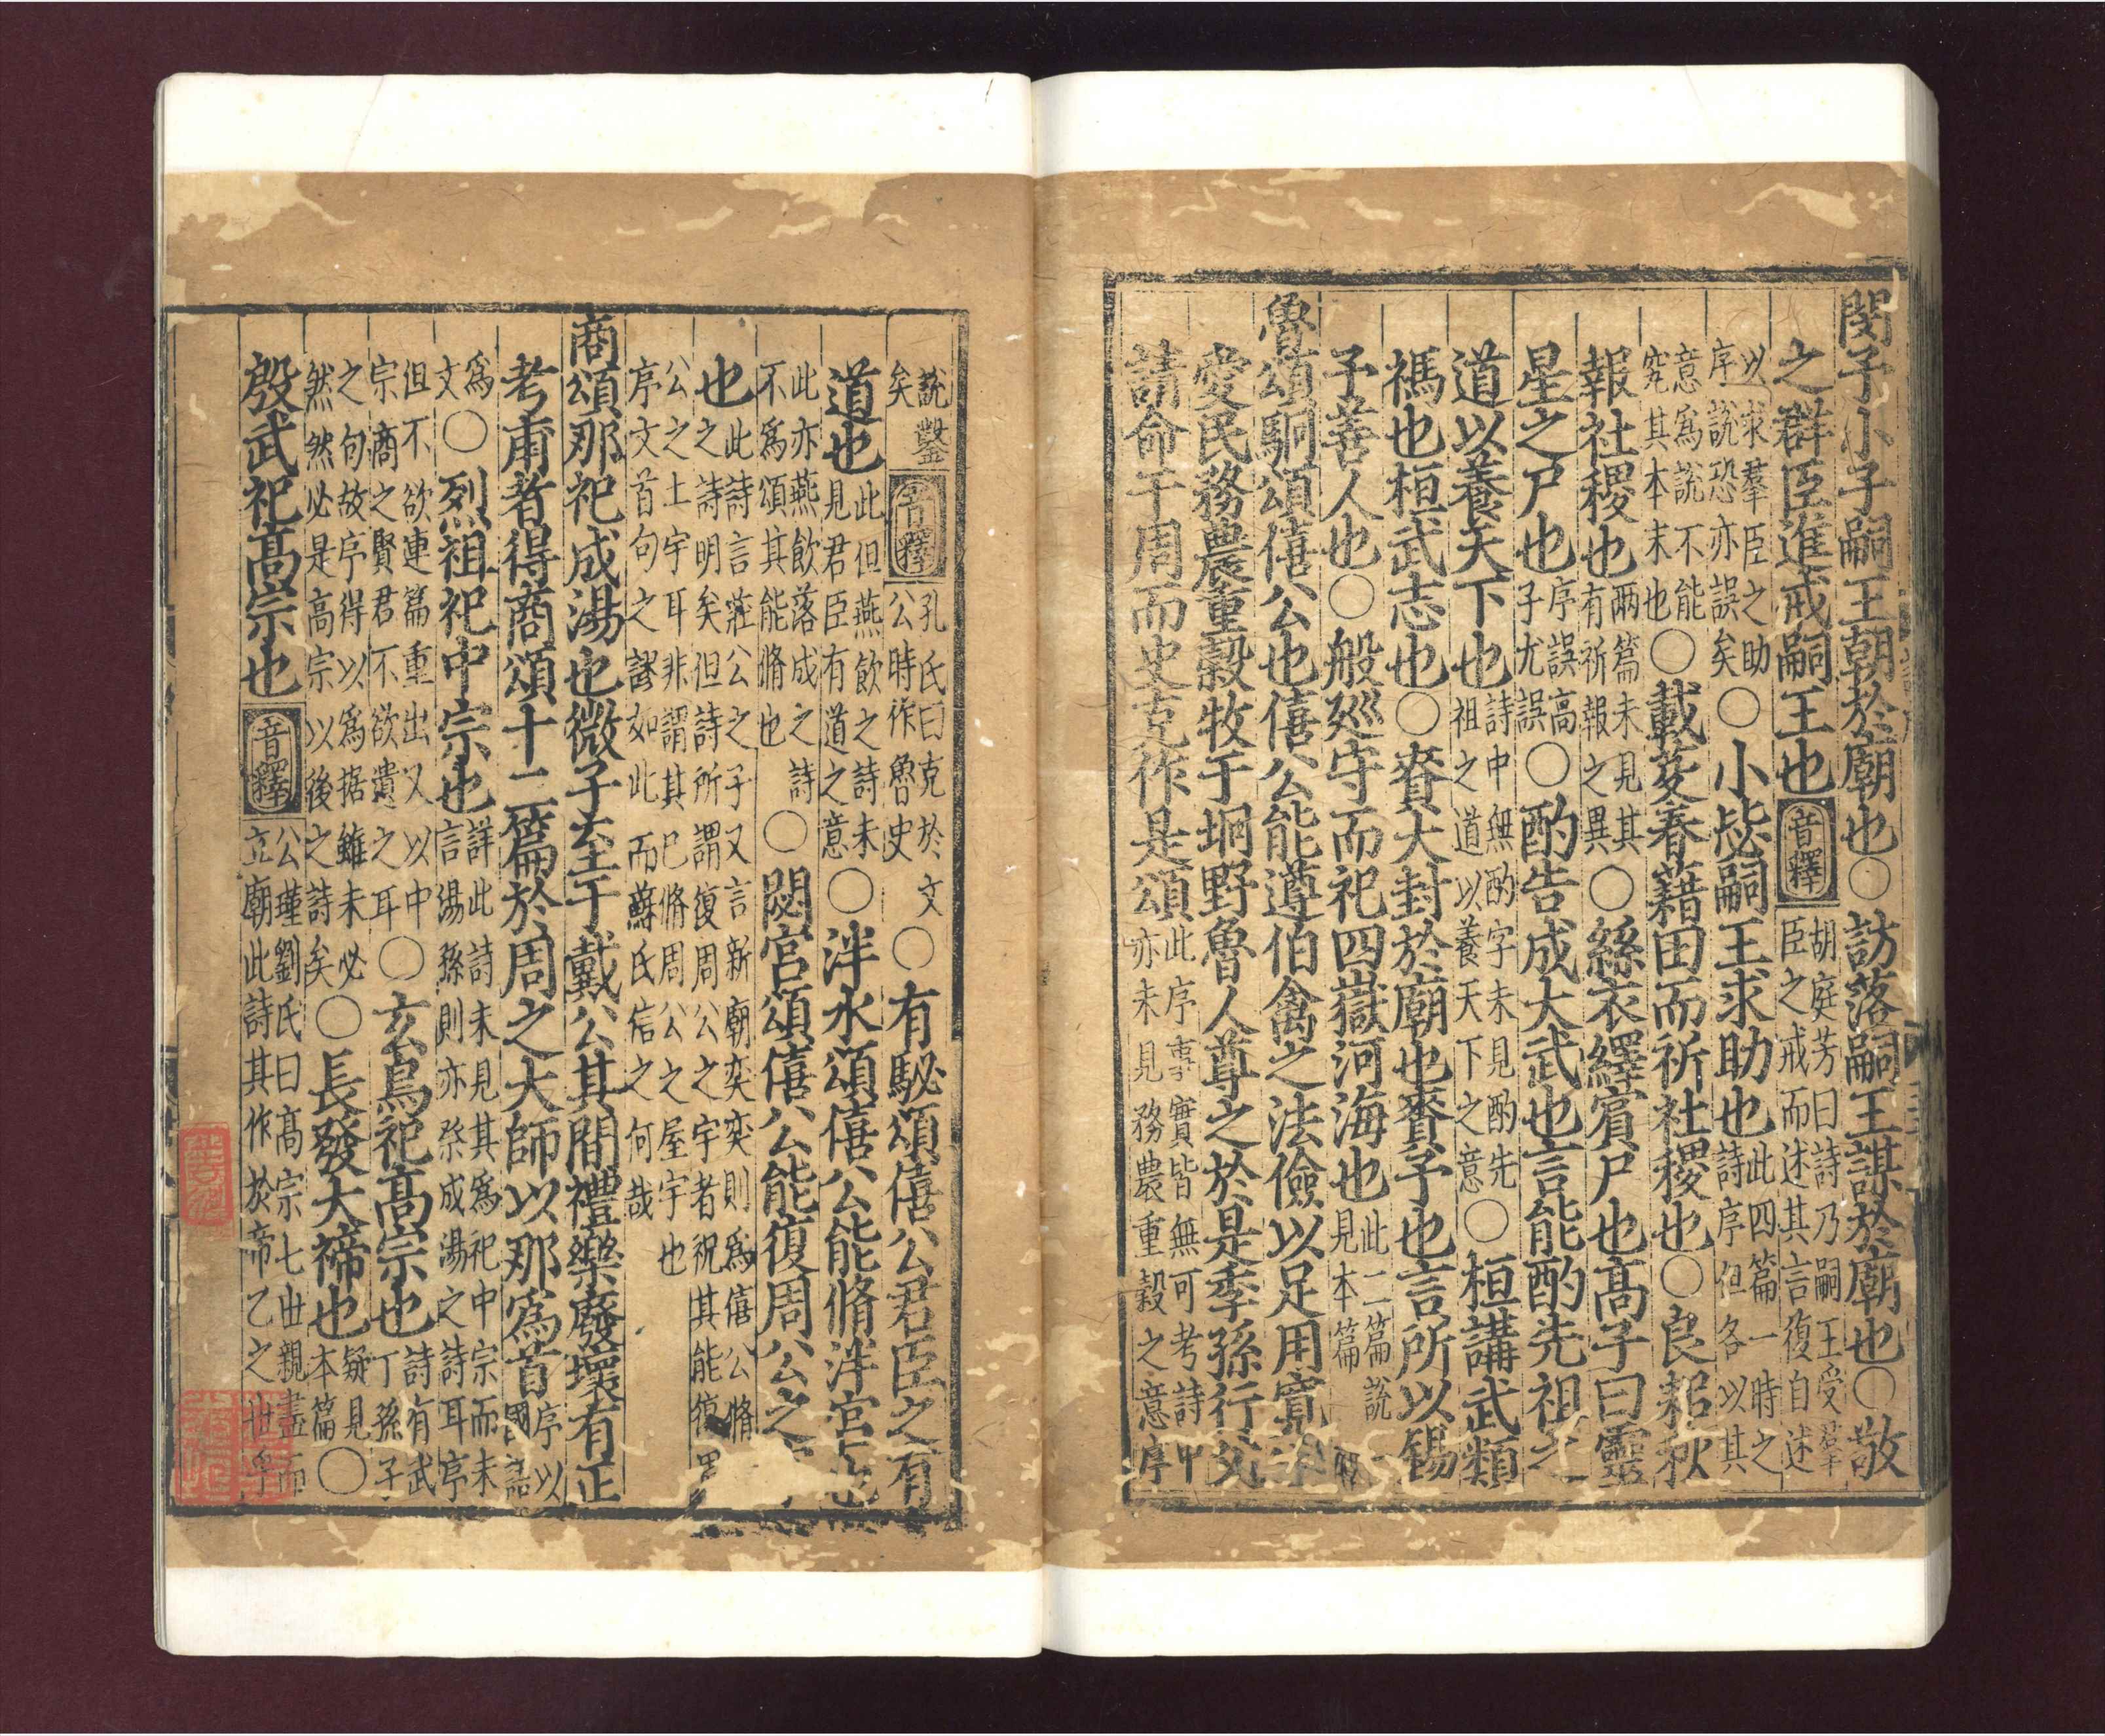 閔予小子嗣王朝於廟也○訪落嗣王謀於廟也○敬
之群臣進戒嗣王也音釋胡庭芳曰詩乃嗣王受羣臣之戒而述其言復自述
以求羣臣之助序說恐亦誤矣○小毖嗣王求助也此四篇一時之詩序但各以其
意為說不能究其本末也○載芟春藉田而祈社稷也○良耜秋
報社稷也兩篇未見其有祈報之異○絲衣繹賓尸也高子曰靈
星之尸也序誤高子尤誤○酌告成大武也言能酌先祖之
道以養天下也詩中無酌字未見酌先祖之道以養天下之意○桓講武類
禡也桓武志也○賚大封於廟也賚予也言所以錫
予善人也○般廵守而祀四嶽河海也此二篇說見本篇
魯頌駉頌僖公也僖公能遵伯禽之法儉以足用寬
愛民務農重穀牧于坰野魯人尊之於是季孫行父
請命于周而史克作是頌此序事實皆無可考詩中亦未見務農重穀之意序
說鑿矣音釋孔氏曰克於文公時作魯史○有駜頌僖公君臣之有
道也此但燕飲之詩未見君臣有道之意○泮水頌僖公能脩泮宮也
此亦燕飲落成之詩不為頌其能脩也○閟宮頌僖公能復周公之
也此詩言莊公之子又言新廟奕奕則為僖公脩之詩明矣但詩所謂復周公之宇者祝其能復
公之土宇耳非謂其已脩周公之屋宇也序文首句之謬如此而蘇氏信之何哉
商頌那祀成湯也微子至于戴公其間禮樂廢壞有正
考甫者得商頌十二篇於周之大師以那為首序以國語
為文○烈祖祀中宗也詳此詩未見其為祀中宗而未言湯孫則亦祭成湯之詩耳序
但不欲連篇重出又以中宗商之賢君不欲遺之耳○玄鳥祀高宗也詩有武丁孫子
之句故序得以為据雖未必然然必是高宗以後之詩矣○長發大禘也疑見本篇○
殷武祀高宗也音釋公瑾劉氏曰高宗七世親盡而立廟此詩其作於帝乙之世乎